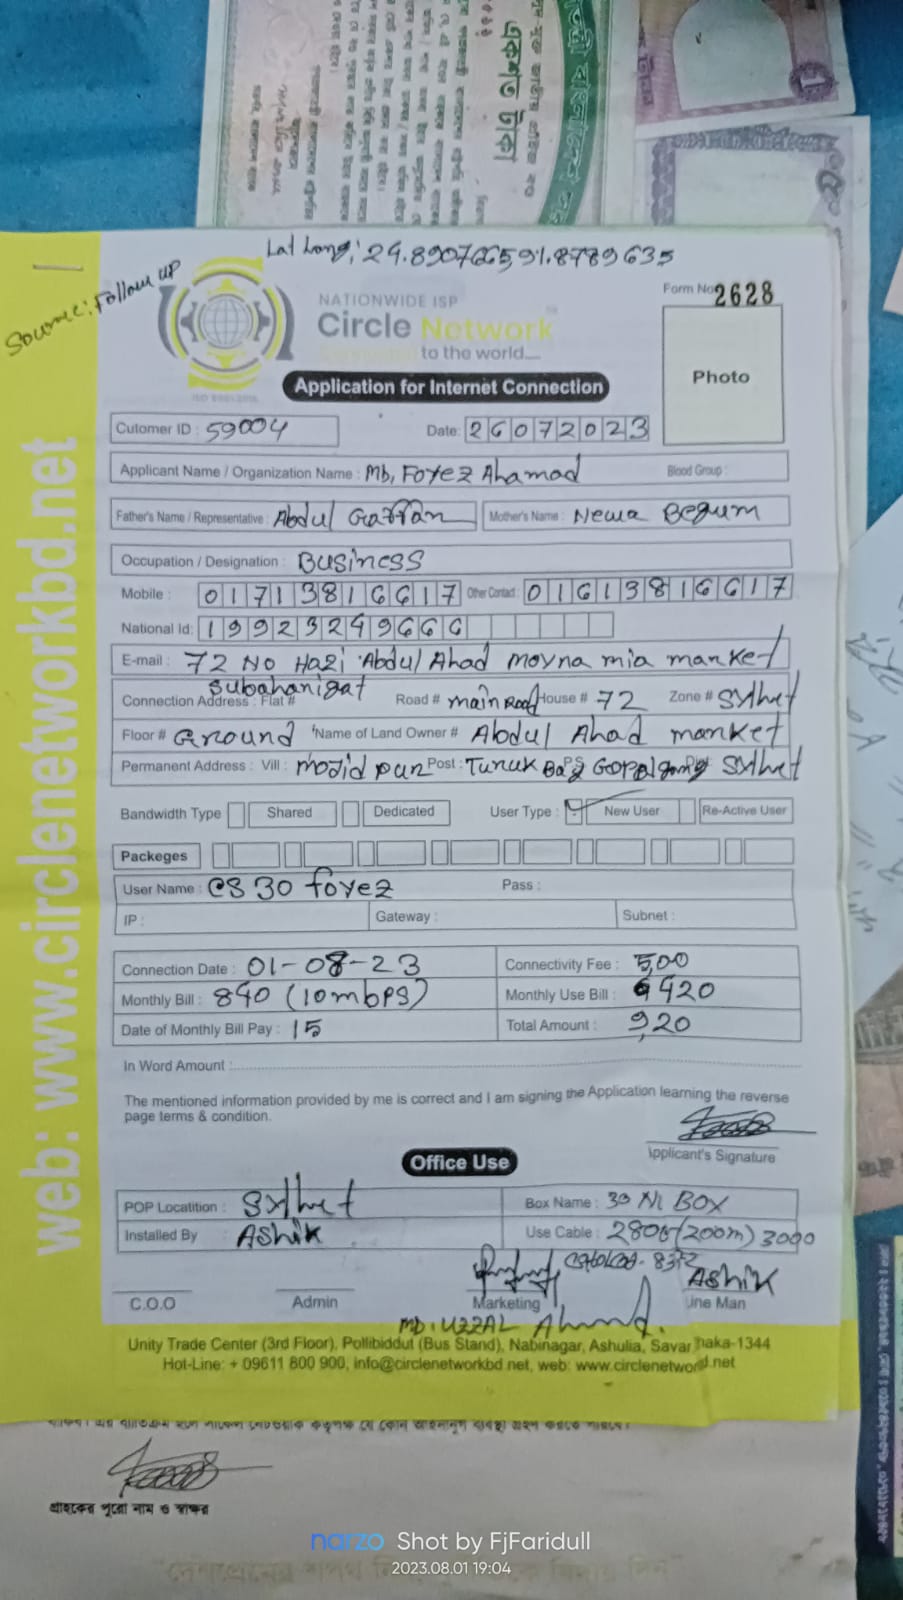 একশত টাকা
Lat Long: 24.8907665,91.8789635
Source: Follow up
NATIONWIDE ISP
Form No 2628
Circle Network
to the world....
Photo
Application for Internet Connection
Cutomer ID : 59004 Date: 26072023
Applicant Name / Organization Name : Md, Foyez Ahamad Blood Group :
Father's Name / Representative : Abdul Gaffan Mother's Name : Newa Begum
Occupation / Designation : Business
Mobile : 01713816617 Other Contact : 01613816617
National Id: 19923249666
E-mail : 72 No Hazi Abdul Ahad moyna mia manket
Subahanigat
Connection Address : Flat # Road # main Road House # 72 Zone # Sylhet
Floor # Ground Name of Land Owner # Abdul Ahad manket
Permanent Address : Vill : mozid pun Post : Tunuk Bag PS Gopalgong Sylhet
Bandwidth Type Shared Dedicated User Type : New User Re-Active User
Packeges
User Name : CS 30 foyez Pass :
IP : Gateway : Subnet :
Connection Date : 01-08-23 Connectivity Fee : 500
Monthly Bill : 840 (10mbps) Monthly Use Bill : 420
Date of Monthly Bill Pay : 15 Total Amount : 920
In Word Amount :
The mentioned information provided by me is correct and I am signing the Application learning the reverse
page terms & condition.
Applicant's Signature
Office Use
POP Locatition : Sylhet Box Name : 30 Ni BOX
Installed By Ashik Use Cable : 2800 (200m) 3000
Ashik
C.O.O Admin Marketing Line Man
MD: UZZAL Ahmed.
Unity Trade Center (3rd Floor), Pollibiddut (Bus Stand), Nabinagar, Ashulia, Savar haka-1344
Hot-Line: + 09611 800 900, info@circlenetworkbd net, web: www.circlenetwor d.net
web: www.circlenetworkbd.net
গ্রাহকের পুরো নাম ও স্বাক্ষর
narzo Shot by FjFaridull
2023.08.01 19:04